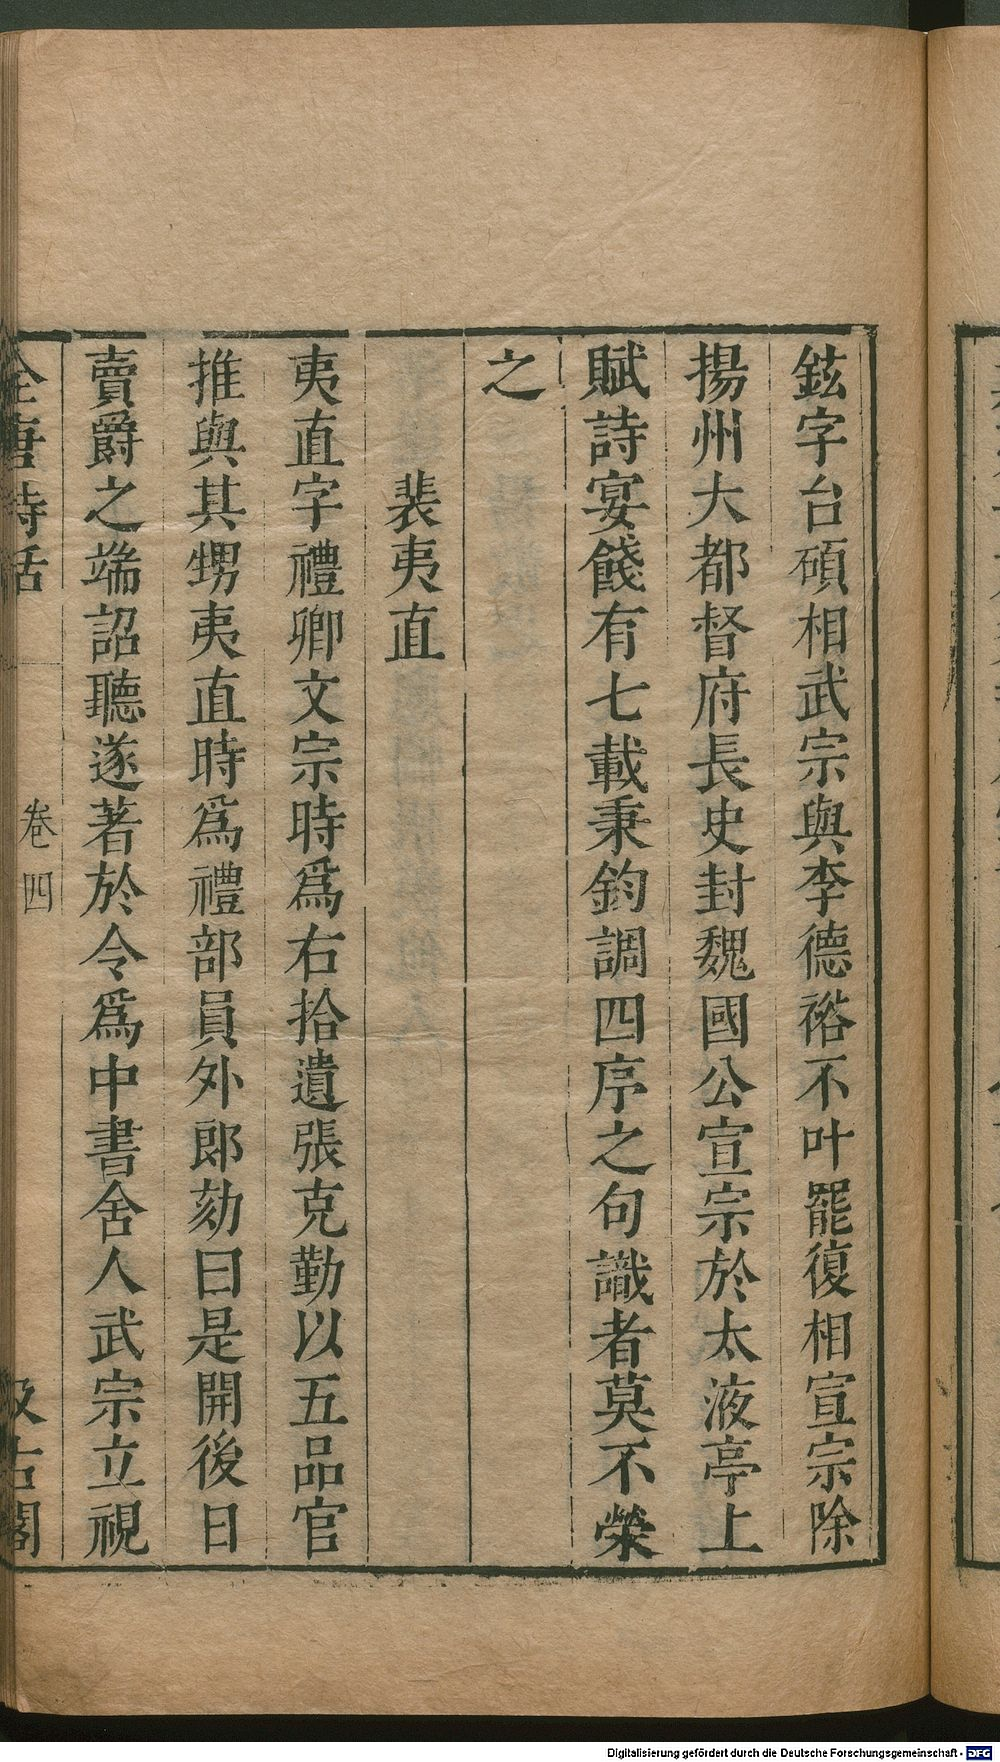 鉉字台碩相武宗與李德裕不叶罷復相宣宗除
揚州大都督府長史封魏國公宣宗於太液亭上
賦詩宴餞有七載秉鈞調四序之句識者莫不榮
之
裴夷直
夷直字禮卿文宗時爲右拾遺張克勤以五品官
推與其甥夷直時爲禮部員外郎劾曰是開後日
賣爵之端詔聽遂著於令爲中書舍人武宗立視
全唐詩話
卷四
汲古閣
Digitalisierung gefördert durch die Deutsche Forschungsgemeinschaft - DFG